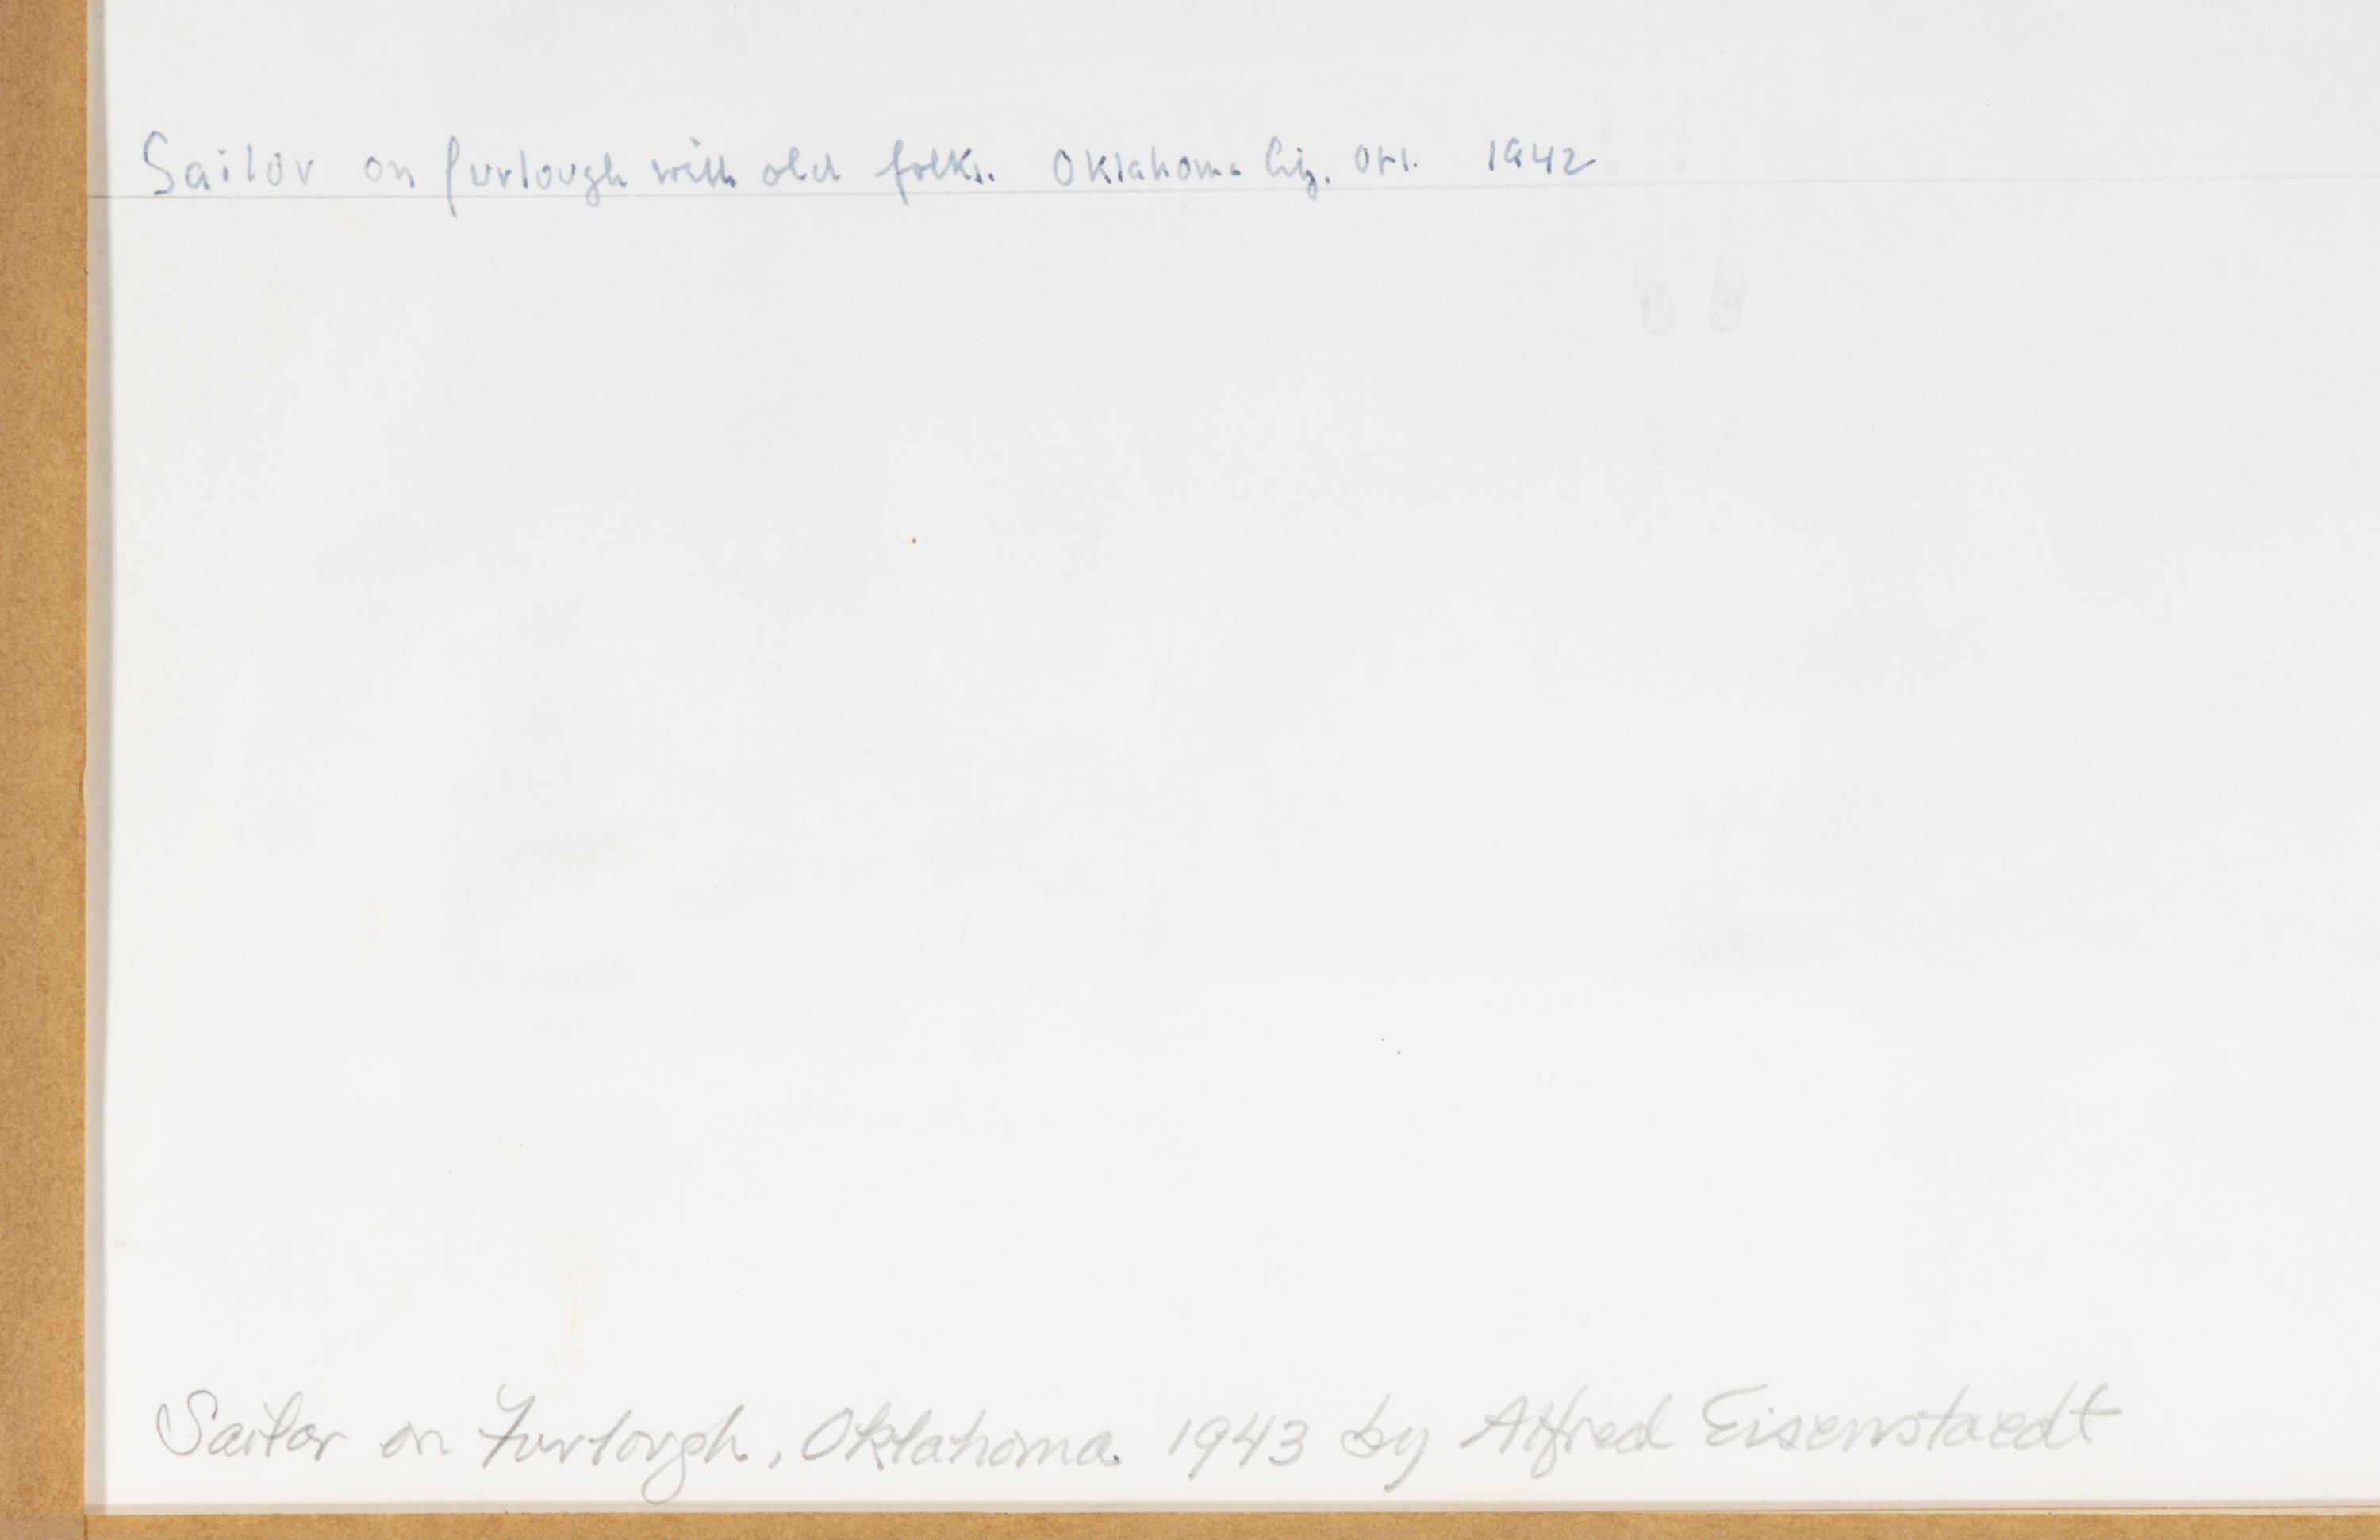 Sailor on furlough with old folks. Oklahoma City. Okl. 1942
Sailor on Furlough, Oklahoma 1943 by Alfred Eisenstaedt